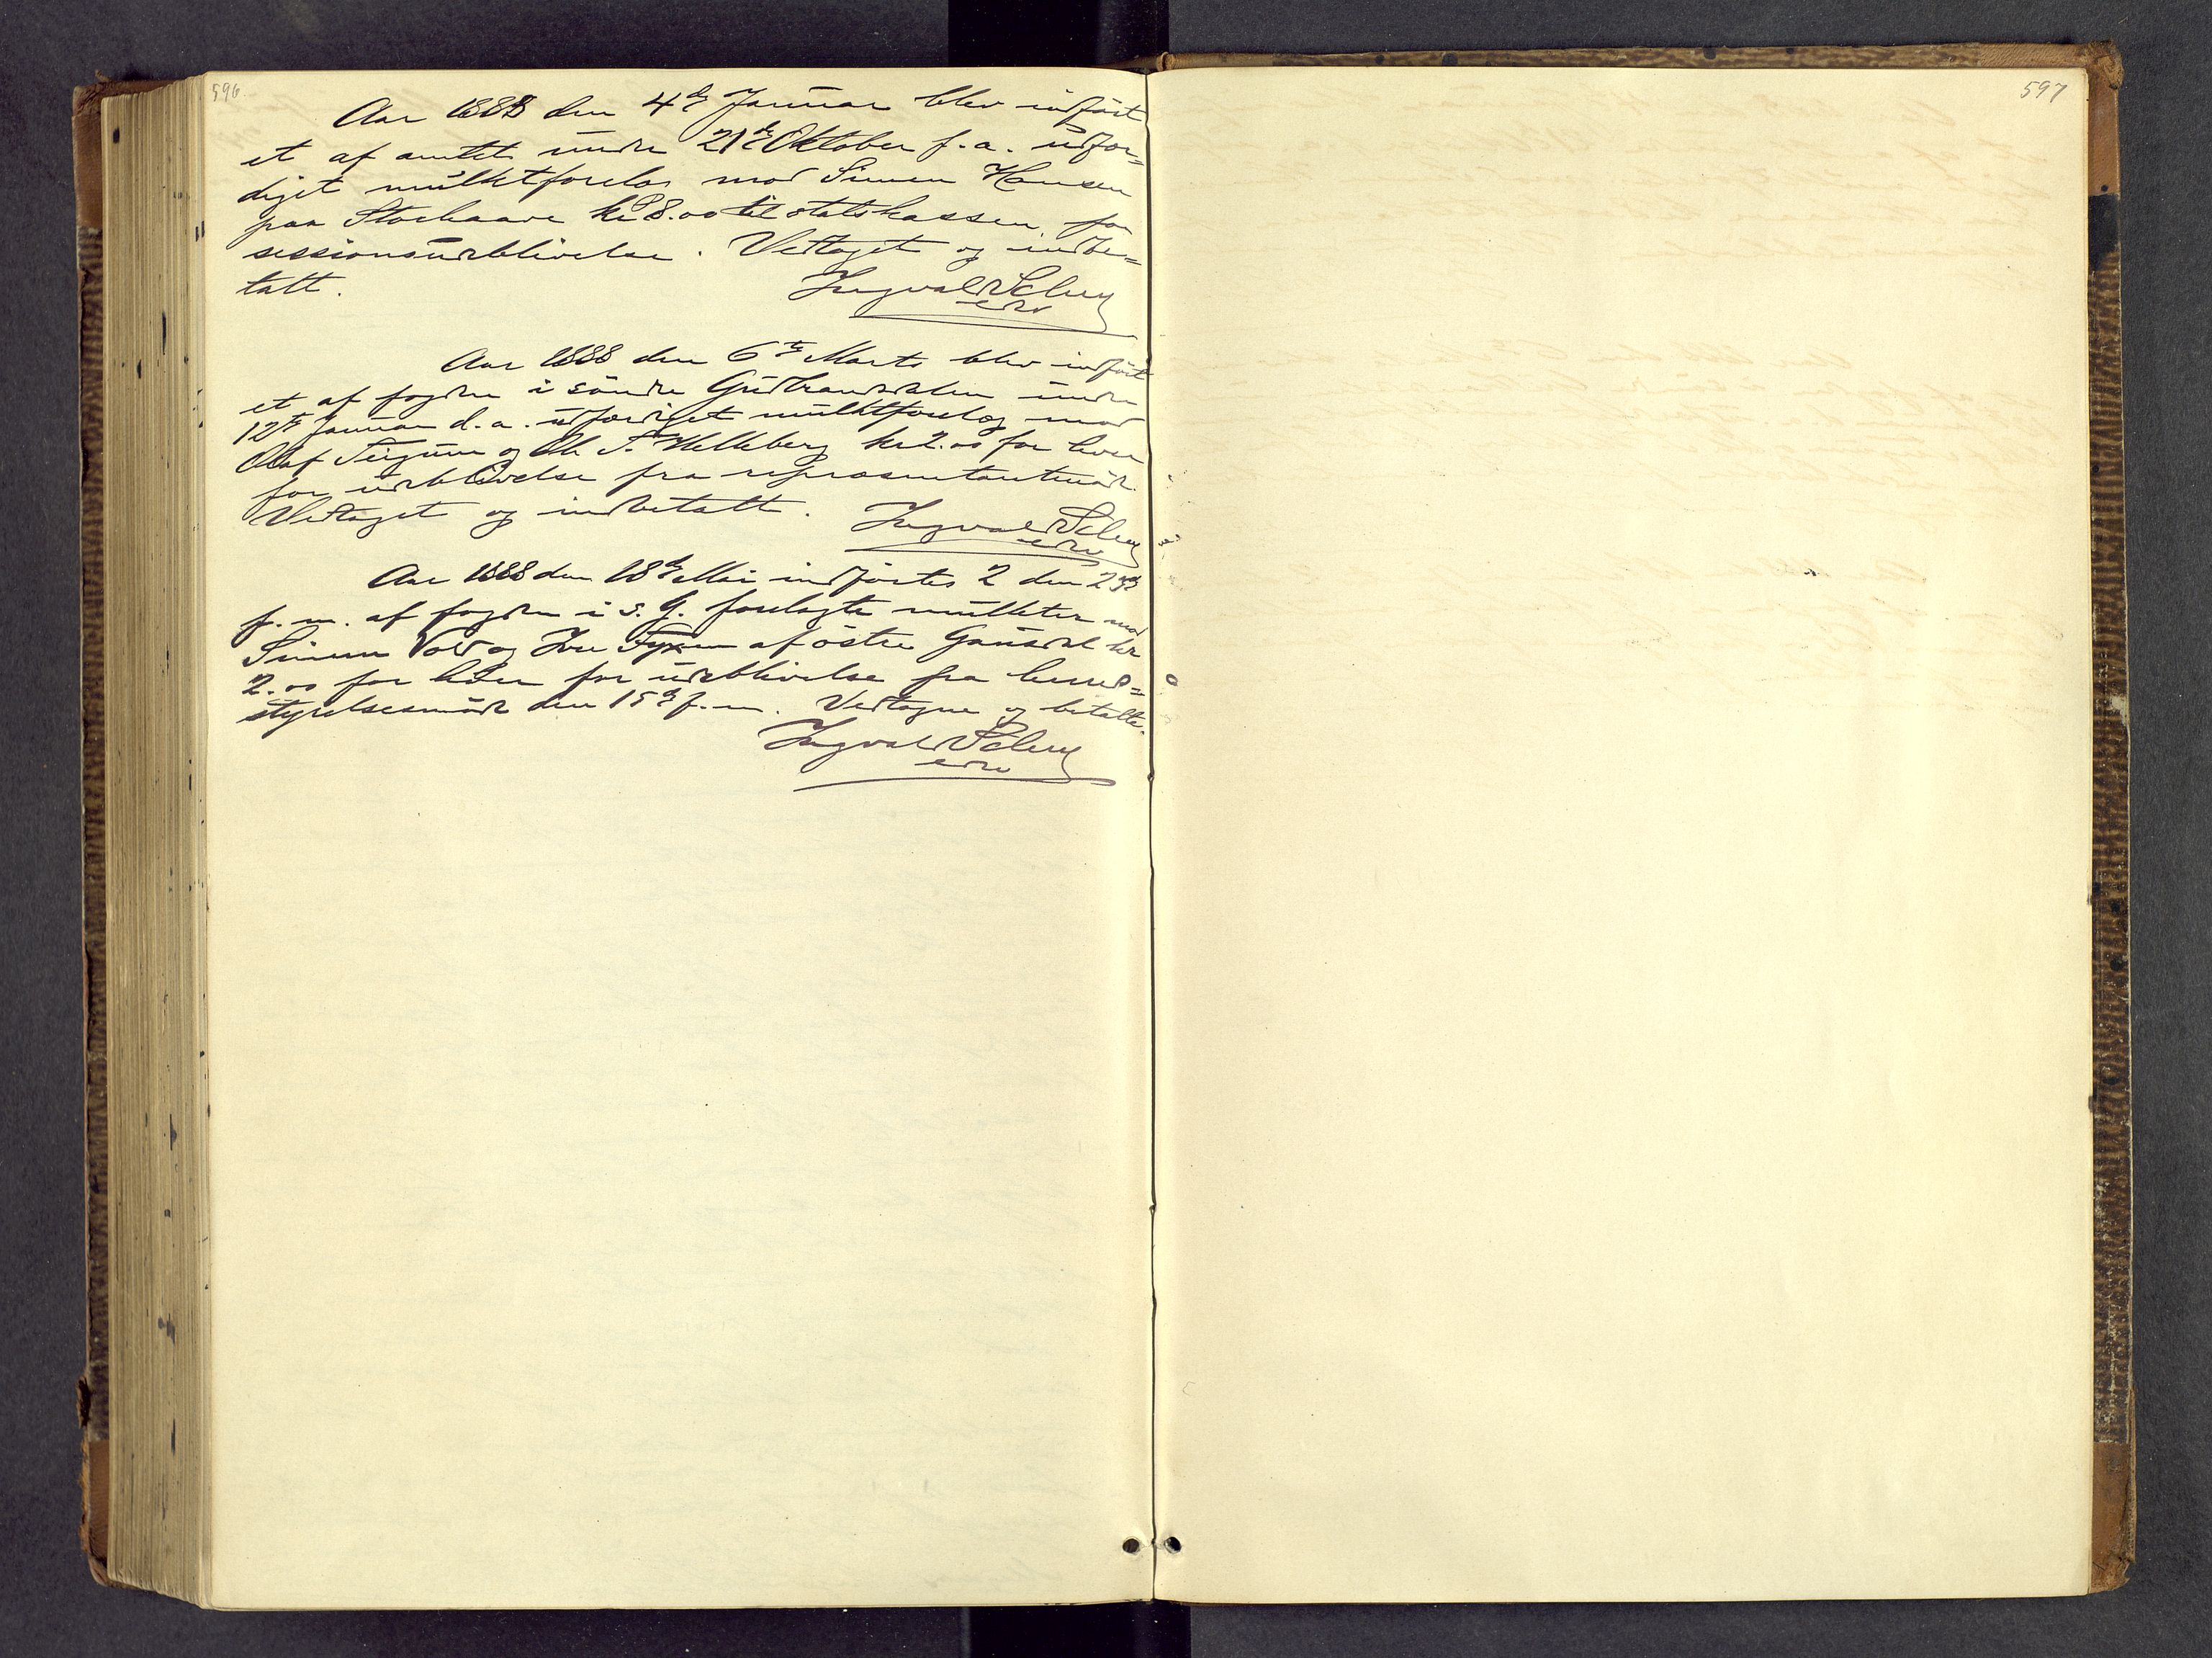 596.
Aar 1888 den 4de Januar blev indført
et af amtet under 21de Oktober f. a. udfær=
diget mulktforelæg mod Simen Hansen
paa kr 8.00 til statskassen for
sessionsudeblivelse. Vedtaget og indbe=
talt.
Ingvald
edsv
Aar 1888 den 6te Marts blev indført
et af fogden i søndre Gudbrandsdalen under
12te Januar d. a. udfærdiget mulktforelæg mod
Olaf og Ole S. Helleberg kr 2.00 for hver
for udeblivelse fra repræsentantmøde.
Vedtaget og indbetalt.
Ingvald
edsv
Aar 1888 den 18de Mai indførtes 2 den 23de
f. m. af fogden i s. G. forelagte mulkter mod
Simen Vold og Iver af østre Gausdal kr
2.00 for hver for udeblivelse fra herreds=
styrelsesmøde den 15de f. m. Vedtagne og betalte.
Ingvald
edsv
597